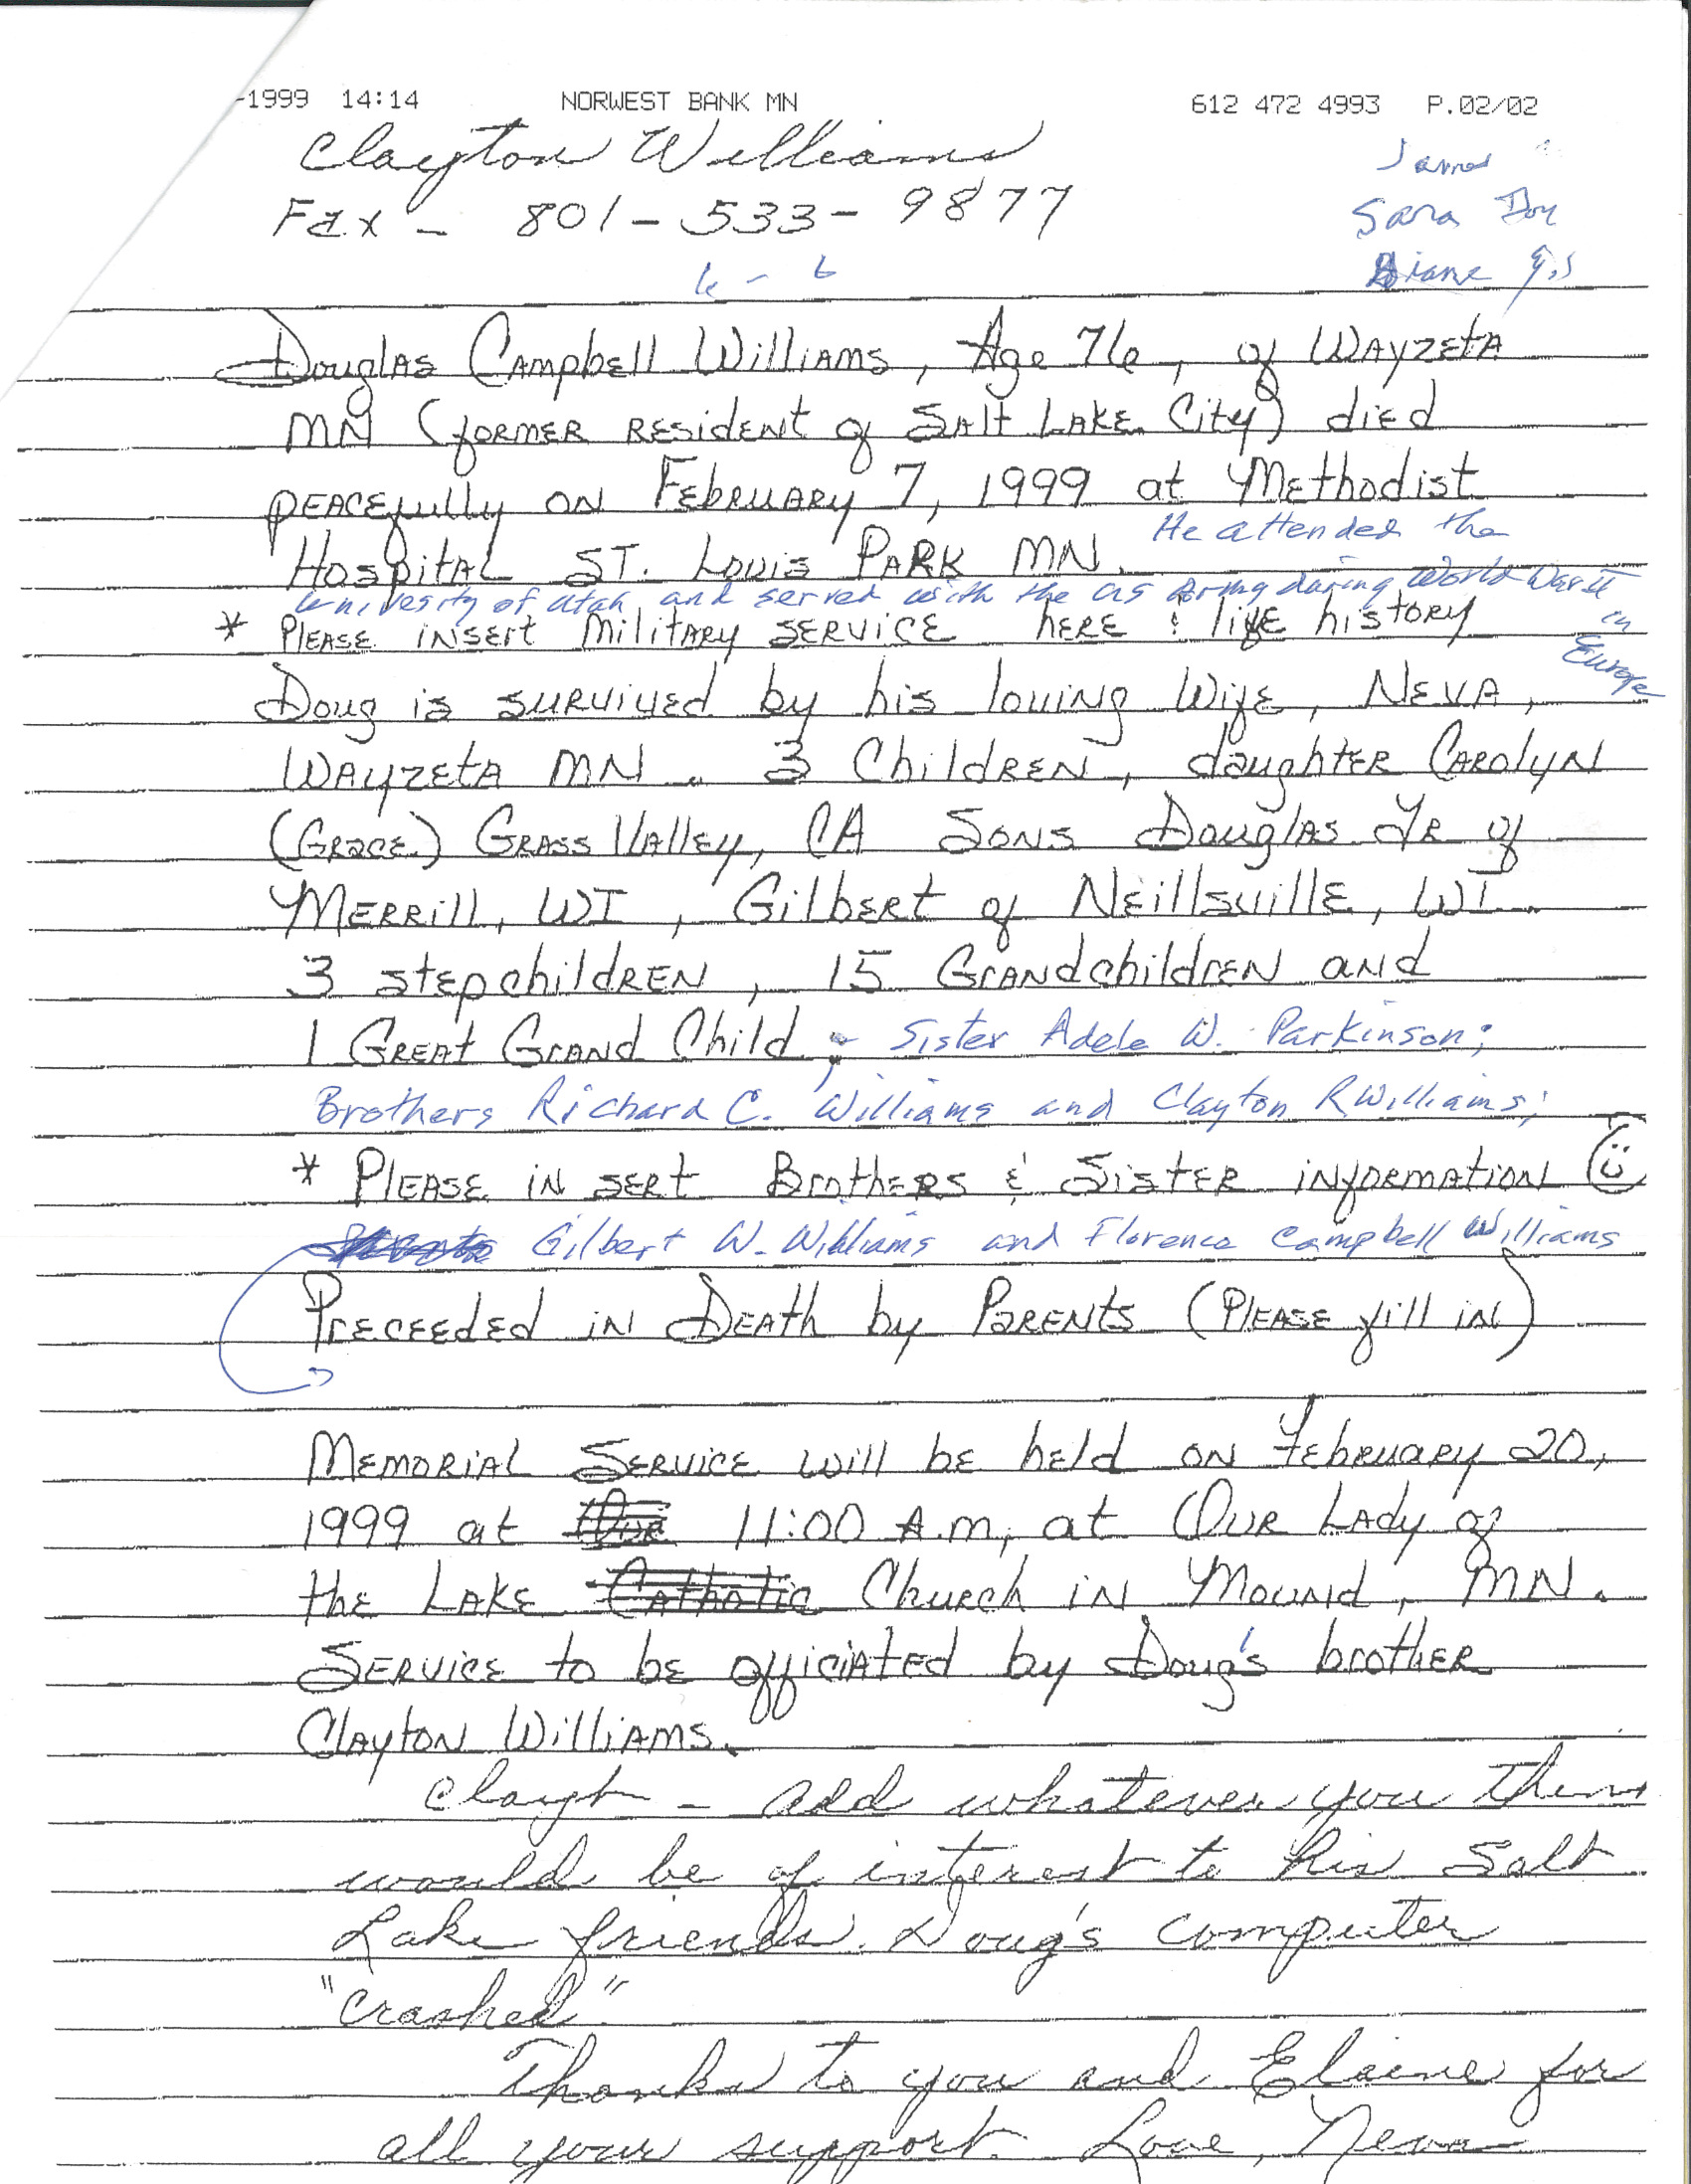 -1999 14:14 NORWEST BANK MN 612 472 4993 P.02/02
Clayton Williams
Fax - 801-533-9877
James
Sara
Diane
Douglas Campbell Williams, Age 76, of Wayzeta
MN (former resident of Salt Lake City) died
peacefully on February 7, 1999 at Methodist
He attended the
Hospital St. Louis Park MN.
University of Utah and served with the US Army during World War II
in
Europe
* Please insert military service here & life history
Doug is survived by his loving wife, Neva,
Wayzeta MN. 3 Children, daughter Carolyn
(Grace) Grass Valley, CA Sons Douglas Jr of
Merrill, WI, Gilbert of Neillsville, WI.
3 stepchildren, 15 Grandchildren and
1 Great Grand Child; Sister Adele W. Parkinson;
Brothers Richard C. Williams and Clayton R Williams;
* Please in sert Brothers & Sister information
Gilbert W. Williams and Florence Campbell Williams
Preceeded in Death by Parents (Please fill in)
Memorial Service will be held on February 20,
1999 at 11:00 A.m, at Our Lady of
the Lake Catholic Church in Mound, MN.
Service to be officiated by Doug's brother
Clayton Williams.
Clayt - add whatever you think
would be of interest to his Salt
Lake friends. Doug's computer
"crashed".
Thanks to you and Elaine for
all your support. Love, Neva